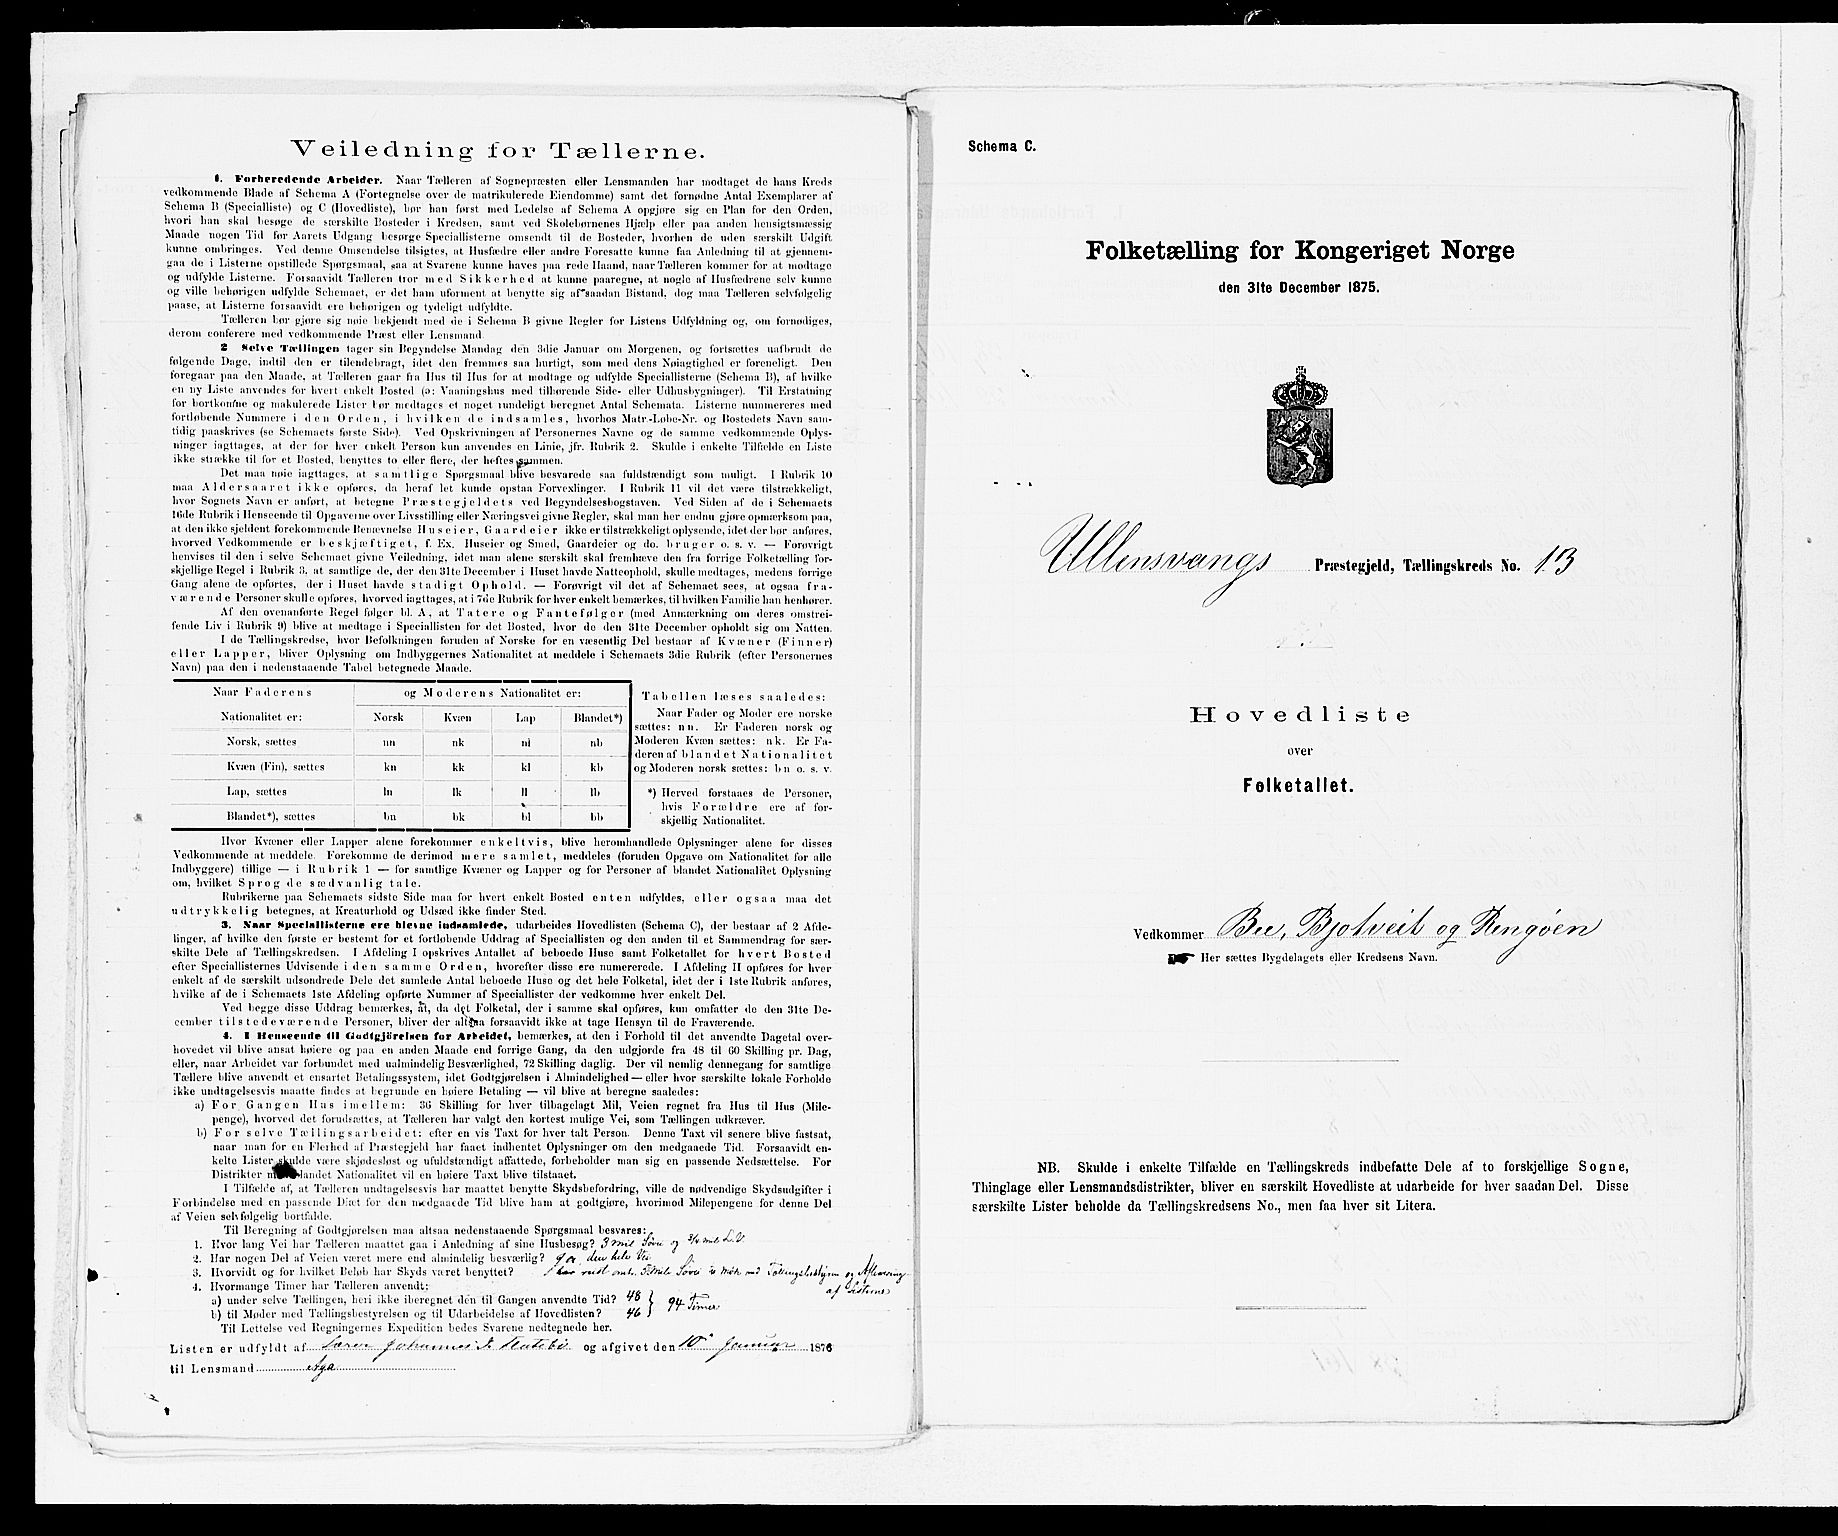 Veiledning for Tællerne.
1. Forberedende Arbeider. Naar Tælleren af Sognepræsten eller Lensmanden har modtaget de hans Kreds
vedkommende Blade af Schema A (Fortegnelse over de matrikulerede Eiendomme) samt det fornødne Antal Exemplarer af
Schema B (Specialliste) og C (Hovedliste), bør han først med Ledelse af Schema A opgjøre sig en Plan for den Orden,
hvori han skal besøge de særskilte Bosteder i Kredsen, samt ved Skolebørnenes Hjælp eller paa anden hensigtsmæssig
Maade nogen Tid før Aarets Udgang besørge Speciallisterne omsendt til de Bosteder, hvorhen de uden særskilt Udgift
kunne ombringes. Ved denne Omsendelse tilsigtes, at Husfædre eller andre Foresatte kunne faa Anledning til at gjennem-
gaa de i Listerne opstillede Spørgsmaal, saa at Svarene kunne haves paa rede Haand, naar Tælleren kommer for at modtage
og udfylde Listerne. Forsaavidt Tælleren tror med Sikkerhed at kunne paaregne, at nogle af Husfædrene selv kunne
og ville behørigen udfylde Schemaet, er det ham uforment at benytte sig af saadan Bistand, dog maa Tælleren selvfølgelig
paase, at Listerne forsaavidt ere behørigen og tydeligt udfyldte.
Tælleren bør gjøre sig nøie bekjendt med de i Schema B givne Regler for Listens Udfyldning og, om fornødiges,
derom conferere med vedkommende Præst eller Lensmand.
2 Selve Tællingen tager sin Begyndelse Mandag den 3die Januar om Morgenen, og fortsættes uafbrudt de
følgende Dage, indtil den er tilendebragt, idet den fremmes saa hurtigt, som med dens Nøiagtighed er foreneligt. Den
foregaar paa den Maade, at Tælleren gaar fra Hus til Hus for at modtage og udfylde Speciallisterne (Schema B), af hvilke
en ny Liste anvendes for hvert enkelt Bosted (ɔ: Vaaningshus med tilhørende Side- eller Udhusbygninger). Til Erstatning
for bortkomne og makulerede Lister bør medtages et noget rundeligt beregnet Antal Schemata. Listerne nummereres med
fortløbende Nummere i den Orden, i hvilken de indsamles, hvorhos Matr.-Løbe-Nr. og Bostedets Navn sam-
tidig paaskrives (se Schemaets første Side). Ved Opskrivningen af Personernes Navne og de samme vedkommende Oplys-
ninger iagttages, at der for hver enkelt Person kun anvendes en Linie, jfr. Rubrik 2. Skulde i enkelte Tilfælde en Liste
ikke strække til for et Bosted, benyttes to eller flere, der heftes sammen.
Det maa nøie iagttages, at samtlige Spørgsmaal blive besvarede saa fuldstændigt som muligt. I Rubrik 10
maa Aldersaaret ikke opføres, da heraf let kunde opstaa Forvexlinger. I Rubrik 11 vil det være tilstrækkeligt,
hvor Sognets Navn er anført, at betegne Præstegjeldets ved Begyndelsesbogstaven. Ved Siden af de i Schemaets
16de Rubrik i Henseende til Opgaverne over Livsstilling eller Næringsvei givne Regler, skal man her endnu gjøre opmærksom paa,
at den ikke sjeldent forekommende Benævnelse Huseier, Gaardeier ikke er tilstrækkeligt oplysende, idet der bør anføres,
hvorved Vedkommende er beskjæftiget, f. Ex. Huseier og Smed, Gaardeier og do. bruger o. s. v. — Forøvrigt
henvises til den i selve Schemaet givne Veiledning, idet man alene særskilt skal fremhæve den fra forrige Folketælling for-
skjellige Regel i Rubrik 3, at samtlige de, der den 31te December i Huset havde Natteophold, skulle medtages, medens forrige
Gang alene de opførtes, der i Huset havde stadigt Ophold. — Forøvrigt vil det af Schemaet sees, at ogsaa fra-
værende Personer skulle opføres, hvorved iagttages, at i 7de Rubrik for hver enkelt bemærkes, til hvilken Familie han henhører.
Af den ovenanførte Regel følger bl. A., at Tatere og Fantefølger (med Anmærkning om deres omstrei-
fende Liv i Rubrik 9) blive at medtage i Speciallisten for det Bosted, hvor de den 31te December opholdt sig om Natten.
I de Tællingskredse, hvor Befolkningen foruden af Norske for en væsentlig Del bestaar af Kvæner (Finner)
eller Lapper, bliver Oplysning om Indbyggernes Nationalitet at meddele i Schemaets 3die Rubrik (efter Personernes
Navn) paa den i nedenstaaende Tabel betegnede Maade.
Naar Faderens og Moderens Nationalitet er:
Nationalitet er: Norsk Kvæn Lap Blandet*)
Norsk, sættes nn nk nl nb
Kvæn (Fin), sættes kn kk kl kb
Lap, sættes ln lk ll lb
Blandet*), sættes bn bk bl bb
Tabellen læses saaledes:
Naar Fader og Moder ere norske
sættes: nn. Er Faderen norsk og
Moderen Kvæn sættes: nk. Er Fa-
deren af blandet Nationalitet
og Moderen norsk sættes: bn o. s. v.
*) Herved forstaaes de Personer,
hvis Forældre ere af for-
skjellig Nationalitet.
Hvor Kvæner eller Lapper alene forekommer enkeltvis, blive heromhandlede Oplysninger alene for disses
Vedkommende at meddele. Forekomme de derimod mere samlet, meddeles (foruden Opgave om Nationalitet for alle
Indbyggere) tillige — i Rubrik 1 — for samtlige Kvæner og Lapper og for Personer af blandet Nationalitet Oplysning
om, hvilket Sprog de sædvanlig tale.
Rubrikerne paa Schemaets sidste Side maa for hvert enkelt Bosted enten udfyldes, eller ogsaa maa det
udtrykkelig betegnes, at Kreaturhold og Udsæd ikke finder Sted.
3. Naar Speciallisterne ere blevne indsamlede, udarbeides Hovedlisten (Schema C), der bestaar af 2 Afde-
linger, af hvilke den første er bestemt for et fortløbende Uddrag af Speciallisten og den anden til et Sammendrag for sær-
skilte Dele af Tællingskredsen. I Afdeling I opskrives Antallet af beboede Huse samt Folketallet for hvert Bosted
efter Speciallisternes Udvisende i den samme Orden, hvorefter disse ere numererede. I Afdeling II opføres for hver
enkelt af de særskilt udsondrede Dele det samlede Antal beboede Huse og det hele Folketal, idet der i 1ste Rubrik anføres,
hvilke af de i Schemaets 1ste Afdeling opførte Nummer af Speciallister der vedkomme hver enkelt Del.
Ved begge disse Uddrag bemærkes, at, da det Folketal, der i samme skal opføres, kun omfatter de den 31te De-
cember tilstedeværende Personer, bliver der altsaa forsaavidt ikke at tage Hensyn til de Fraværende.
4. I Henseende til Godtgjörelsen for Arbeidet, bemærkes, at den i Forhold til det anvendte Dagetal over-
hovedet vil blive ansat høiere og paa en anden Maade end forrige Gang, da den udgjorde fra 48 til 60 Skilling pr. Dag,
eller, naar Arbeidet var forbundet med ualmindelig Besværlighed, 72 Skilling daglig. Der vil nemlig dennegang for samtlige
Tællere blive anvendt et ensartet Betalingssystem, idet Godtgjørelsen i Almindelighed — eller hvor særskilte lokale Forholde
ikke undtagelsesvis maatte findes at begrunde en høiere Betaling — vil blive at beregne saaledes:
a) For Gangen Hus imellem: 36 Skilling for hver tilbagelagt Mil, Veien regnet fra Hus til Hus (Mile-
penge), hvorved det forudsættes, at Tælleren har valgt den kortest mulige Vei, som Tællingen udkræver.
b) For selve Tællingsarbeidet: efter en vis Taxt for hver talt Person. Denne Taxt vil senere blive fastsat,
naar man for en Flerhed af Præstegjeld har faaet indhentet Oplysninger om den medgaaede Tid. Forsaavidt en-
kelte Lister skulde være skjødesløst og ufuldstændigt affattede, forbeholder man sig en passende Nedsættelse. For
Distrikter med blandet Nationalitet vil en høiere Taxt blive tilstaaet.
I Tilfælde af, at Tælleren undtagelsesvis har maattet benytte Skydsbefordring, ville de nødvendige Skydsudgifter i
Forbindelse med en passende Diæt for den medgaaede Tid blive ham at godtgjøre, hvorimod Milepengene for denne Del
af Veien selvfølgelig bortfalde.
Til Beregning af Godtgjørelsen maa altsaa nedenstaaende Spørgsmaal besvares:
1. Hvor lang Vei har Tælleren maattet gaa i Anledning af sine Husbesøg? 3 Mil Søvei og 3/4 Mil L.V.
2. Har nogen Del af Veien været mere end almindelig besværlig? Ja, den hele Vei
3. Hvorvidt og for hvilket Beløb har Skyds været benyttet? har reist omtr. Mile Søvei Møde med Tællingsbestyren og Aflevering
af Listerne
4. Hvormange Timer har Tælleren anvendt:
a) under selve Tællingen, heri ikke iberegnet den til Gangen anvendte Tid? 48
b) til Møder med Tællingsbestyrelsen og til Udarbeidelse af Hovedlisten? 46 } 94 Timer
Til Lettelse ved Regningernes Expedition bedes Svarene nedtegnede her.
Listen er udfyldt af Johannes og afgivet den 10 Januar 1876
til Lensmand Aga
Schema C.
Folketælling for Kongeriget Norge
den 31te December 1875.
Ullensvangs Præstegjeld, Tællingskreds No. 13
Hovedliste
over
Folketallet.
Vedkommer Bue, Bjotveit og Ringøen
Her sættes Bygdelagets eller Kredsens Navn.
NB. Skulde i enkelte Tilfælde en Tællingskreds indbefatte Dele af to forskjellige Sogne,
Thinglage eller Lensmandsdistrikter, bliver en særskilt Hovedliste at udarbeide for hver saadan Del. Disse
særskilte Lister beholde da Tællingskredsens No., men faa hver sit Litera.